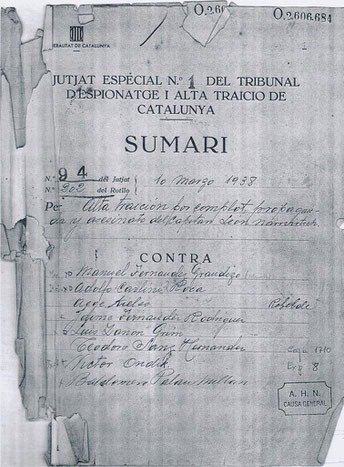 O.2.60
O.2.606.684
GENERALITAT DE CATALUNYA
JUTJAT ESPECIAL N.º 1 DEL TRIBUNAL
D'ESPIONATGE I ALTA TRAICIO DE
CATALUNYA
SUMARI
N.º 94 del Jutjat
N.º 202 del Rotllo
10 Marzo 1938
Per Alta traicion por complot, propagan-
da y asesinato del Capitan Leon Narwitsch
CONTRA
Manuel Fernandez Grandizo
Adolfo Carlini Roca
Aage Kielso
Jaime Fernandez Rodriguez
Luis Zanon Grim
Teodoro Sanz Hernandez
Victor Ondik
Baldomero Palau Millan
Caja 1710
Exp 8
A. H. N.
CAUSA GENERAL